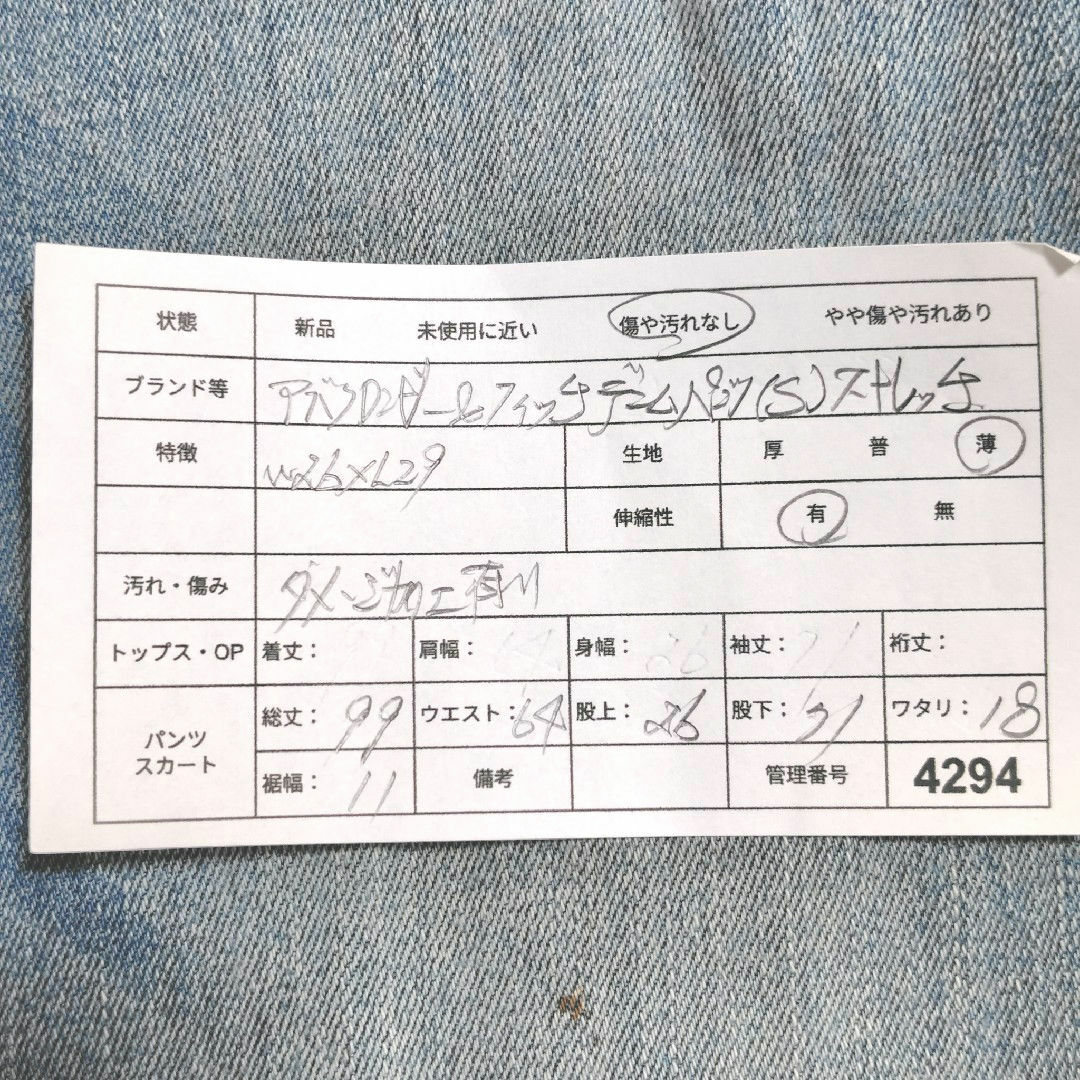 状態 新品 未使用に近い 傷や汚れなし やや傷や汚れあり
ブランド等 アバクロンビー&フィッチデニムパンツ(S)ストレッチ
特徴 W26×L29 生地 厚 普 薄
伸縮性 有 無
汚れ・傷み ダメージ加工有り
トップス・OP 着丈： 肩幅： 64 身幅： 26 袖丈： 71 裄丈：
パンツ スカート 総丈： 99 ウエスト： 64 股上： 26 股下： 71 ワタリ： 18
裾幅： 11 備考 管理番号 4294